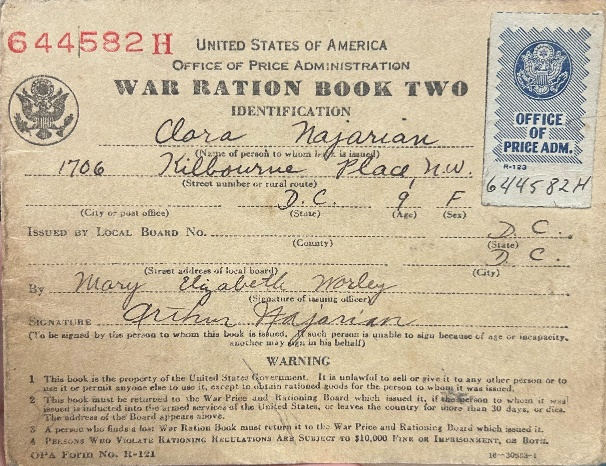 644582 H
UNITED STATES OF AMERICA
OFFICE OF PRICE ADMINISTRATION
WAR RATION BOOK TWO
IDENTIFICATION
OFFICE
OF
PRICE ADM.
R-123
644582H
Clara Najarian
(Name of person to whom book is issued)
1706 Kilbourne Place, N.W.
(Street number or rural route)
D.C. 9 F
(City or post office) (State) (Age) (Sex)
ISSUED BY LOCAL BOARD NO. D.C.
(County) (State)
D.C.
(Street address of local board) (City)
By Mary Elizabeth Worley
(Signature of issuing officer)
SIGNATURE Arthur Najarian
(To be signed by the person to whom this book is issued. If such person is unable to sign because of age or incapacity, another may sign in his behalf)
WARNING
1 This book is the property of the United States Government. It is unlawful to sell or give it to any other person or to
use it or permit anyone else to use it, except to obtain rationed goods for the person to whom it was issued.
2 This book must be returned to the War Price and Rationing Board which issued it, if the person to whom it was
issued is inducted into the armed services of the United States, or leaves the country for more than 30 days, or dies.
The address of the Board appears above.
3 A person who finds a lost War Ration Book must return it to the War Price and Rationing Board which issued it.
4 PERSONS WHO VIOLATE RATIONING REGULATIONS ARE SUBJECT TO $10,000 FINE OR IMPRISONMENT, OR BOTH.
OPA Form No. R-121 16—30853-1